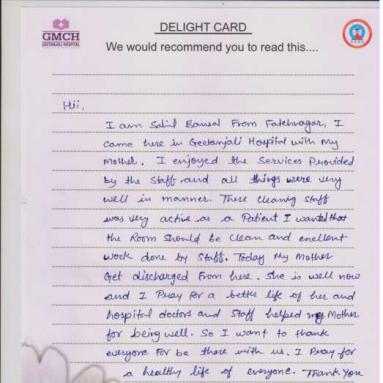 GMCH
GEETANJALI HOSPITAL
DELIGHT CARD
We would recommend you to read this....
Hii,
I am Sahil Bansal From Fatehnagar, I
came here in Geetanjali Hospital with My
Mother. I enjoyed the Services Provided
by the Staff and all things were very
well in manner. There cleaning staff
was very active as a Patient I wanted that
the Room should be clean and enellent
work done by Staff. Today My Mother
Get discharged From here. She is well now
and I Pray For a bette life of her and
hospital doctors and Staff helped my Mother
for being well. So I want to thank
everyone For be there with us. I Pray for
a healthy life of everyone. Thank You